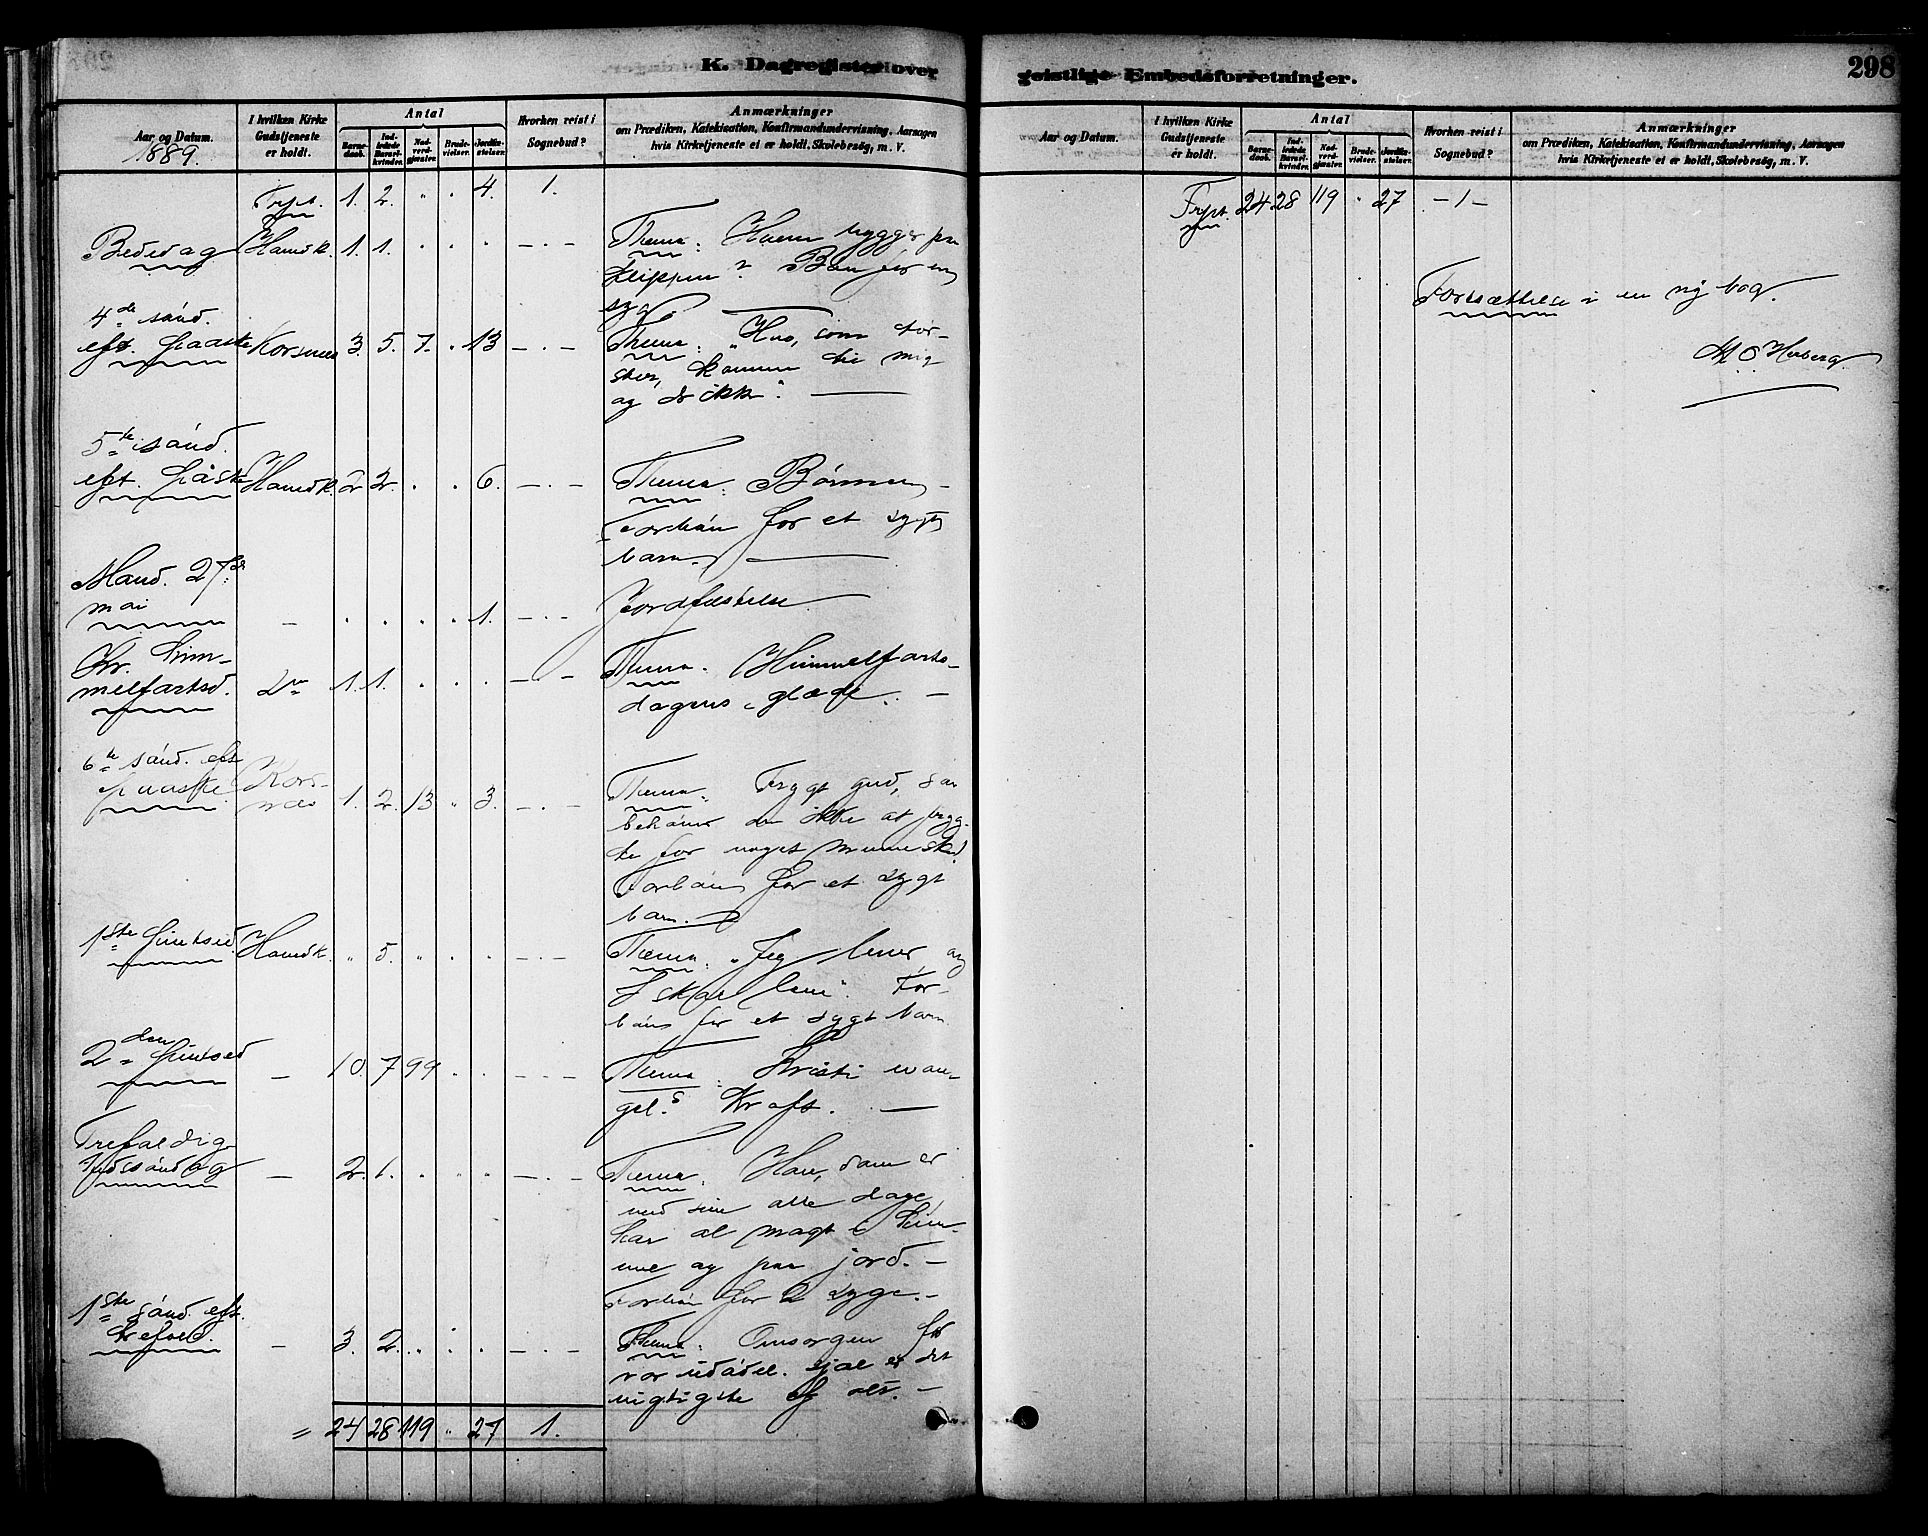 K. Dagregister over
Aar og Datum.
1889.
I hvilken Kirke Gudstjeneste er holdt.
Antal
Barnedaab.
Indledede Barselkvinder.
Nadverdgjester.
Brudevielser.
Jordfæstelser.
Hvorhen reist i Sognebud?
Anmærkninger
om Prædiken, Katekisation, Konfirmandsundervisning, Aarsagen
hvis Kirketjeneste ei er holdt. Skolebesøg, m. V.
Frpt. 1. 2. " . 4. 1.
Bededag Hamdk. 1. 1. . . . - . - Thema: Hvem bygger paa
klippen? Bøn for en
syg
4de sønd.
eft. paaske Korsnes 3. 5. 7. . 13 - . - Thema: "Hvo, som tør-
ster, komme til mig
og drikke". —
5te sønd.
eft. påske Hamdk. 2. 2. . . 6. - . - Thema: Bønnen -
Forbøn for et sygt
barn. —
Mand. 27de
mai - . . . . 1. - . - Jordfæstelse
Kr. him-
melfartsd. 1. 1. . . . - . - Thema: Himmelfarts-
dagens glæde. -
6te sønd. eft
paaske Kors-
næs 1. 2. 13 " 3. - . - Thema: Frygt gud, saa
behøver du ikke at fryg-
te for noget menneske.
Forbøn for et sygt
barn.
1ste pintsed. Hamdk. " 5. " . . - . - Thema: "Jeg lever og
I skal leve". For-
bøn for et sygt barn
2den pintsed - 10. 7 99 . . - . - Thema: Kristi evan-
gel.s kraft. —
Trefoldig-
hedssøndag - 2. 1. . . . - . - Thema: Han, som er
med sine alle dage,
har al magt i him-
mel og paa jord. -
Forbøn for 2 syge. -
1ste sønd. eft.
trefold. - 3. 2. . . . - . - Thema: Omsorgen for
vor udødel. sjæl er det
vigtigste af alt. -
= 24 28 119 " 27 1.
geistlige Embedsforretninger.
298
Aar og Datum.
I hvilken Kirke Gudstjeneste er holdt.
Antal
Barnedaab.
Indledede Barselkvinder.
Nadverdgjester.
Brudevielser.
Jordfæstelser.
Hvorhen reist i Sognebud?
Anmærkninger
om Prædiken, Katekisation, Konfirmandsundervisning, Aarsagen
hvis Kirketjeneste ei er holdt. Skolebesøg, m. V.
Frpt. 24 28 119 . 27 - 1 -
Fortsættelse i en ny bog.